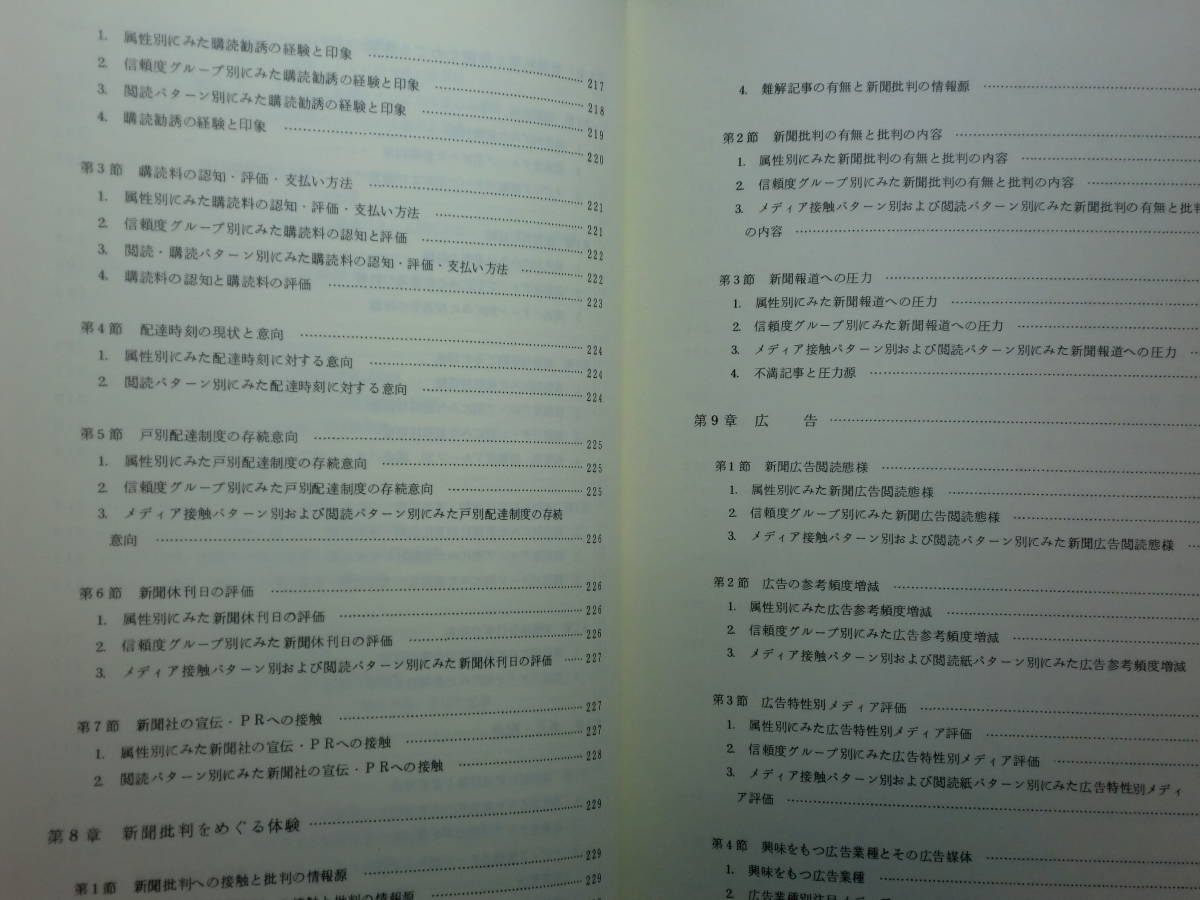 1. 属性別にみた購読勧誘の経験と印象 …… 217
2. 信頼度グループ別にみた購読勧誘の経験と印象 …… 218
3. 閲読パターン別にみた購読勧誘の経験と印象 …… 219
4. 購読勧誘の経験と印象 …… 220
第3節 購読料の認知・評価・支払い方法 …… 221
1. 属性別にみた購読料の認知・評価・支払い方法 …… 221
2. 信頼度グループ別にみた購読料の認知と評価 …… 222
3. 閲読・購読パターン別にみた購読料の認知・評価・支払い方法 …… 222
4. 購読料の認知と購読料の評価 …… 223
第4節 配達時刻の現状と意向 …… 224
1. 属性別にみた配達時刻に対する意向 …… 224
2. 閲読パターン別にみた配達時刻に対する意向 …… 224
第5節 戸別配達制度の存続意向 …… 225
1. 属性別にみた戸別配達制度の存続意向 …… 225
2. 信頼度グループ別にみた戸別配達制度の存続意向 …… 225
3. メディア接触パターン別および閲読パターン別にみた戸別配達制度の存続
意向 …… 226
第6節 新聞休刊日の評価 …… 226
1. 属性別にみた新聞休刊日の評価 …… 226
2. 信頼度グループ別にみた新聞休刊日の評価 …… 226
3. メディア接触パターン別および閲読パターン別にみた新聞休刊日の評価 …… 227
第7節 新聞社の宣伝・PRへの接触 …… 227
1. 属性別にみた新聞社の宣伝・PRへの接触 …… 227
2. 閲読パターン別にみた新聞社の宣伝・PRへの接触 …… 228
第8章 新聞批判をめぐる体験 …… 229
第1節 新聞批判への接触と批判の情報源 …… 229
接触と批判の情報源 …… 229
4. 難解記事の有無と新聞批判の情報源 ……
第2節 新聞批判の有無と批判の内容 ……
1. 属性別にみた新聞批判の有無と批判の内容 ……
2. 信頼度グループ別にみた新聞批判の有無と批判の内容 ……
3. メディア接触パターン別および閲読パターン別にみた新聞批判の有無と批判
の内容 ……
第3節 新聞報道への圧力 ……
1. 属性別にみた新聞報道への圧力 ……
2. 信頼度グループ別にみた新聞報道への圧力 ……
3. メディア接触パターン別および閲読パターン別にみた新聞報道への圧力 ……
4. 不満記事と圧力源 ……
第9章 広 告 ……
第1節 新聞広告閲読態様 ……
1. 属性別にみた新聞広告閲読態様 ……
2. 信頼度グループ別にみた新聞広告閲読態様 ……
3. メディア接触パターン別および閲読パターン別にみた新聞広告閲読態様 ……
第2節 広告の参考頻度増減 ……
1. 属性別にみた広告参考頻度増減 ……
2. 信頼度グループ別にみた広告参考頻度増減 ……
3. メディア接触パターン別および閲読紙パターン別にみた広告参考頻度増減
第3節 広告特性別メディア評価 ……
1. 属性別にみた広告特性別メディア評価 ……
2. 信頼度グループ別にみた広告特性別メディア評価 ……
3. メディア接触パターン別および閲読紙パターン別にみた広告特性別メディ
ア評価 ……
第4節 興味をもつ広告業種とその広告媒体 ……
1. 興味をもつ広告業種 ……
2. 広告業種別注目メディア ……